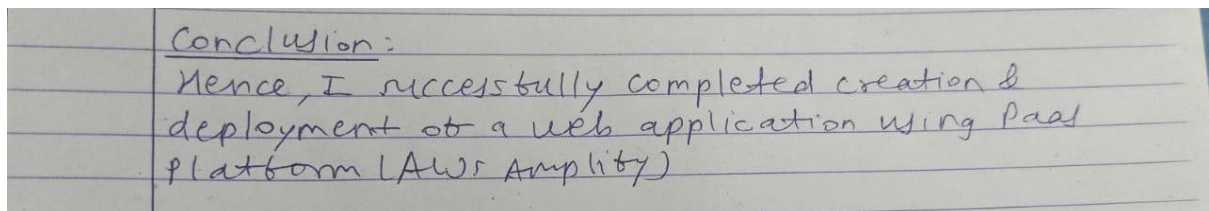 Conclusion:
Hence, I successfully completed creation &
deployment of a web application using PaaS
platform (AWS Amplify)